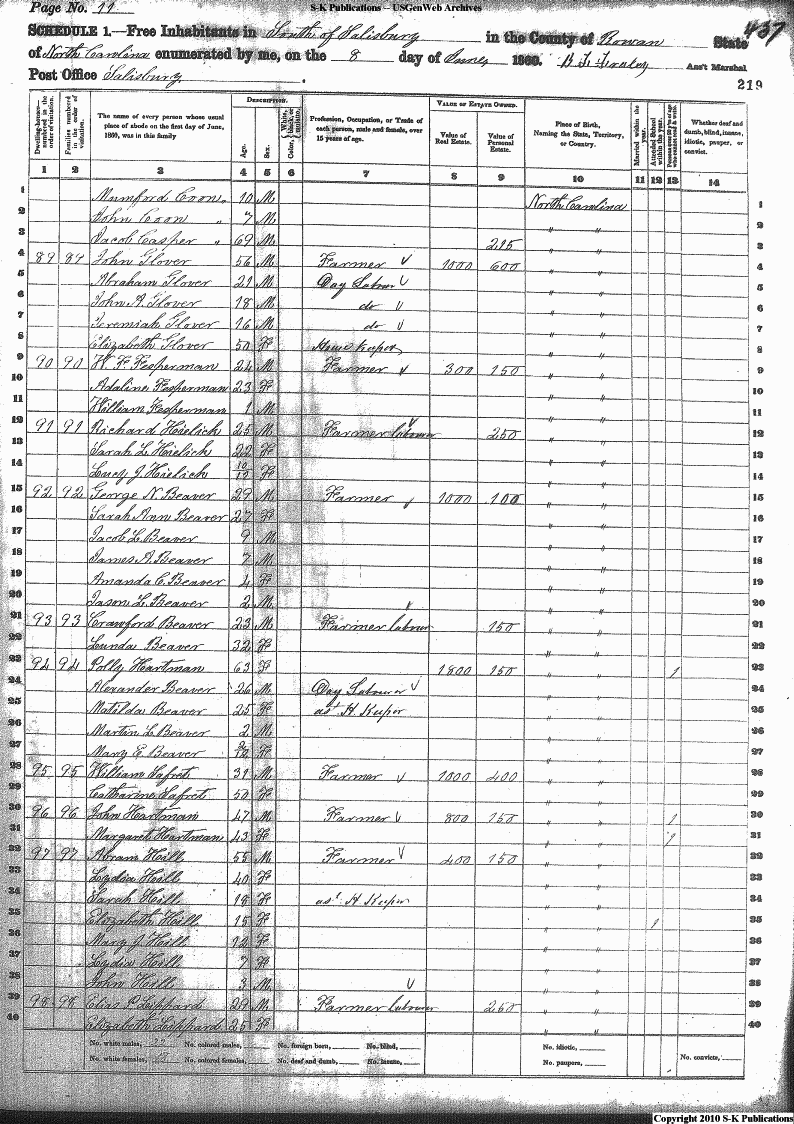 S-K Publications – USGenWeb Archives
Page No. 11
437
SCHEDULE 1.—Free Inhabitants in South of Salisbury in the County of Rowan State
of North Carolina enumerated by me, on the 8 day of June, 1860. B. F. Fraley Ass't Marshal
Post Office Salisbury
219
Dwelling-houses—numbered in the order of visitation.
Families numbered in the order of visitation.
The name of every person whose usual place of abode on the first day of June, 1860, was in this family
DESCRIPTION.
Age.
Sex.
Color, White, black, or mulatto.
Profession, Occupation, or Trade of each person, male and female, over 15 years of age.
VALUE OF ESTATE OWNED.
Value of Real Estate.
Value of Personal Estate.
Place of Birth, Naming the State, Territory, or Country.
Married within the year.
Attended School within the year.
Persons over 20 y'rs of age who cannot read & write.
Whether deaf and dumb, blind, insane, idiotic, pauper, or convict.
1 2 3 4 5 6 7 8 9 10 11 12 13 14
1 Mumford Coon „ 10 M North Carolina 1
2 John Coon „ 7 M „ „ 2
3 Jacob Casper „ 69 M 215 „ „ 3
4 89 89 John Glover 56 M Farmer 1000 600 „ „ 4
5 Abraham Glover 21 M Day Labour „ „ 5
6 John A. Glover 18 M do „ „ 6
7 Jeremiah Glover 16 M do „ „ 7
8 Elizabeth Glover 50 F House Keeper „ „ 8
9 90 90 W. F. Fesperman 24 M Farmer 300 150 „ „ 9
10 Adaline Fesperman 23 F „ „ 10
11 William Fesperman 1 M „ „ 11
12 91 91 Richard Hielich 25 M Farmer labourer 250 „ „ 12
13 Sarah L. Hielich 22 F „ „ 13
14 Lucy J. Hielich 10/12 F „ „ 14
15 92 92 George N. Beaver 29 M Farmer 1000 100 „ „ 15
16 Sarah Ann Beaver 27 F „ „ 16
17 Jacob L. Beaver 9 M „ „ 17
18 James A. Beaver 7 M „ „ 18
19 Amanda C. Beaver 4 F „ „ 19
20 Jason L. Beaver 2 M „ „ 20
21 93 93 Crawford Beaver 23 M Farmer labourer 150 „ „ 21
22 Lunda Beaver 32 F „ „ 22
23 94 94 Polly Hartman 63 F 1800 150 „ „ 1 23
24 Alexander Beaver 26 M Day Labourer „ „ 24
25 Matilda Beaver 25 F ast H. Keeper „ „ 25
26 Martin L. Beaver 2 M „ „ 26
27 Mary E. Beaver /12 F „ „ 27
28 95 95 William Safret 31 M Farmer 1000 400 „ „ 28
29 Catharine Safret 50 F „ „ 29
30 96 96 John Hartman 47 M Farmer 800 150 „ „ 1 30
31 Margaret Hartman 43 F „ „ 1 31
32 97 97 Abram Hill 55 M Farmer 400 150 „ „ 32
33 Lydia Hill 40 F „ „ 33
34 Sarah Hill 18 F ast H Keeper „ „ 34
35 Elizabeth Hill 15 F „ „ 1 35
36 Mary J. Hill 12 F „ „ 36
37 Lydia Hill 7 F „ „ 37
38 John Hill 3 M „ „ 38
39 98 98 Elias P. Lippard 29 M Farmer labourer 250 „ „ 39
40 Elizabeth Lippard 25 F „ „ 40
No. white males, 22 No. colored males, No. foreign born, No. blind, No. idiotic,
No. white females, 18 No. colored females, No. deaf and dumb, No. insane, No. paupers, No. convicts,
Copyright 2010 S-K Publications